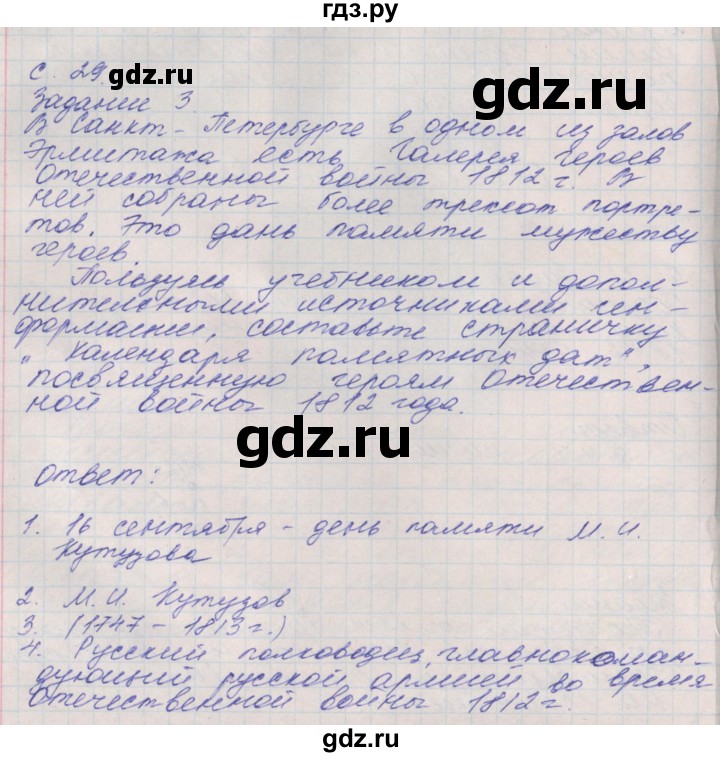 гдз.ру
с. 29.
gdz.ru
gdz.ru
Задание 3
В Санкт-Петербурге в одном из залов
Эрмитажа есть Галерея героев
Отечественной войны 1812 г. В
ней собраны более трехсот портре-
тов. Это дань памяти мужеству
героев.
Пользуясь учебником и допол-
нительными источниками ин-
формации, составьте страничку
"Календаря памятных дат",
посвященную героям Отечествен-
ной войны 1812 года.
gdz.ru
ответ:
1. 16 сентября - день памяти М. И.
Кутузова
2. М. И. Кутузов
3. (1747 - 1813 г.)
4. Русский полководец, главнокоман-
дующий русской армией во время
Отечественной войны 1812 г.
gdz.ru
gdz.ru